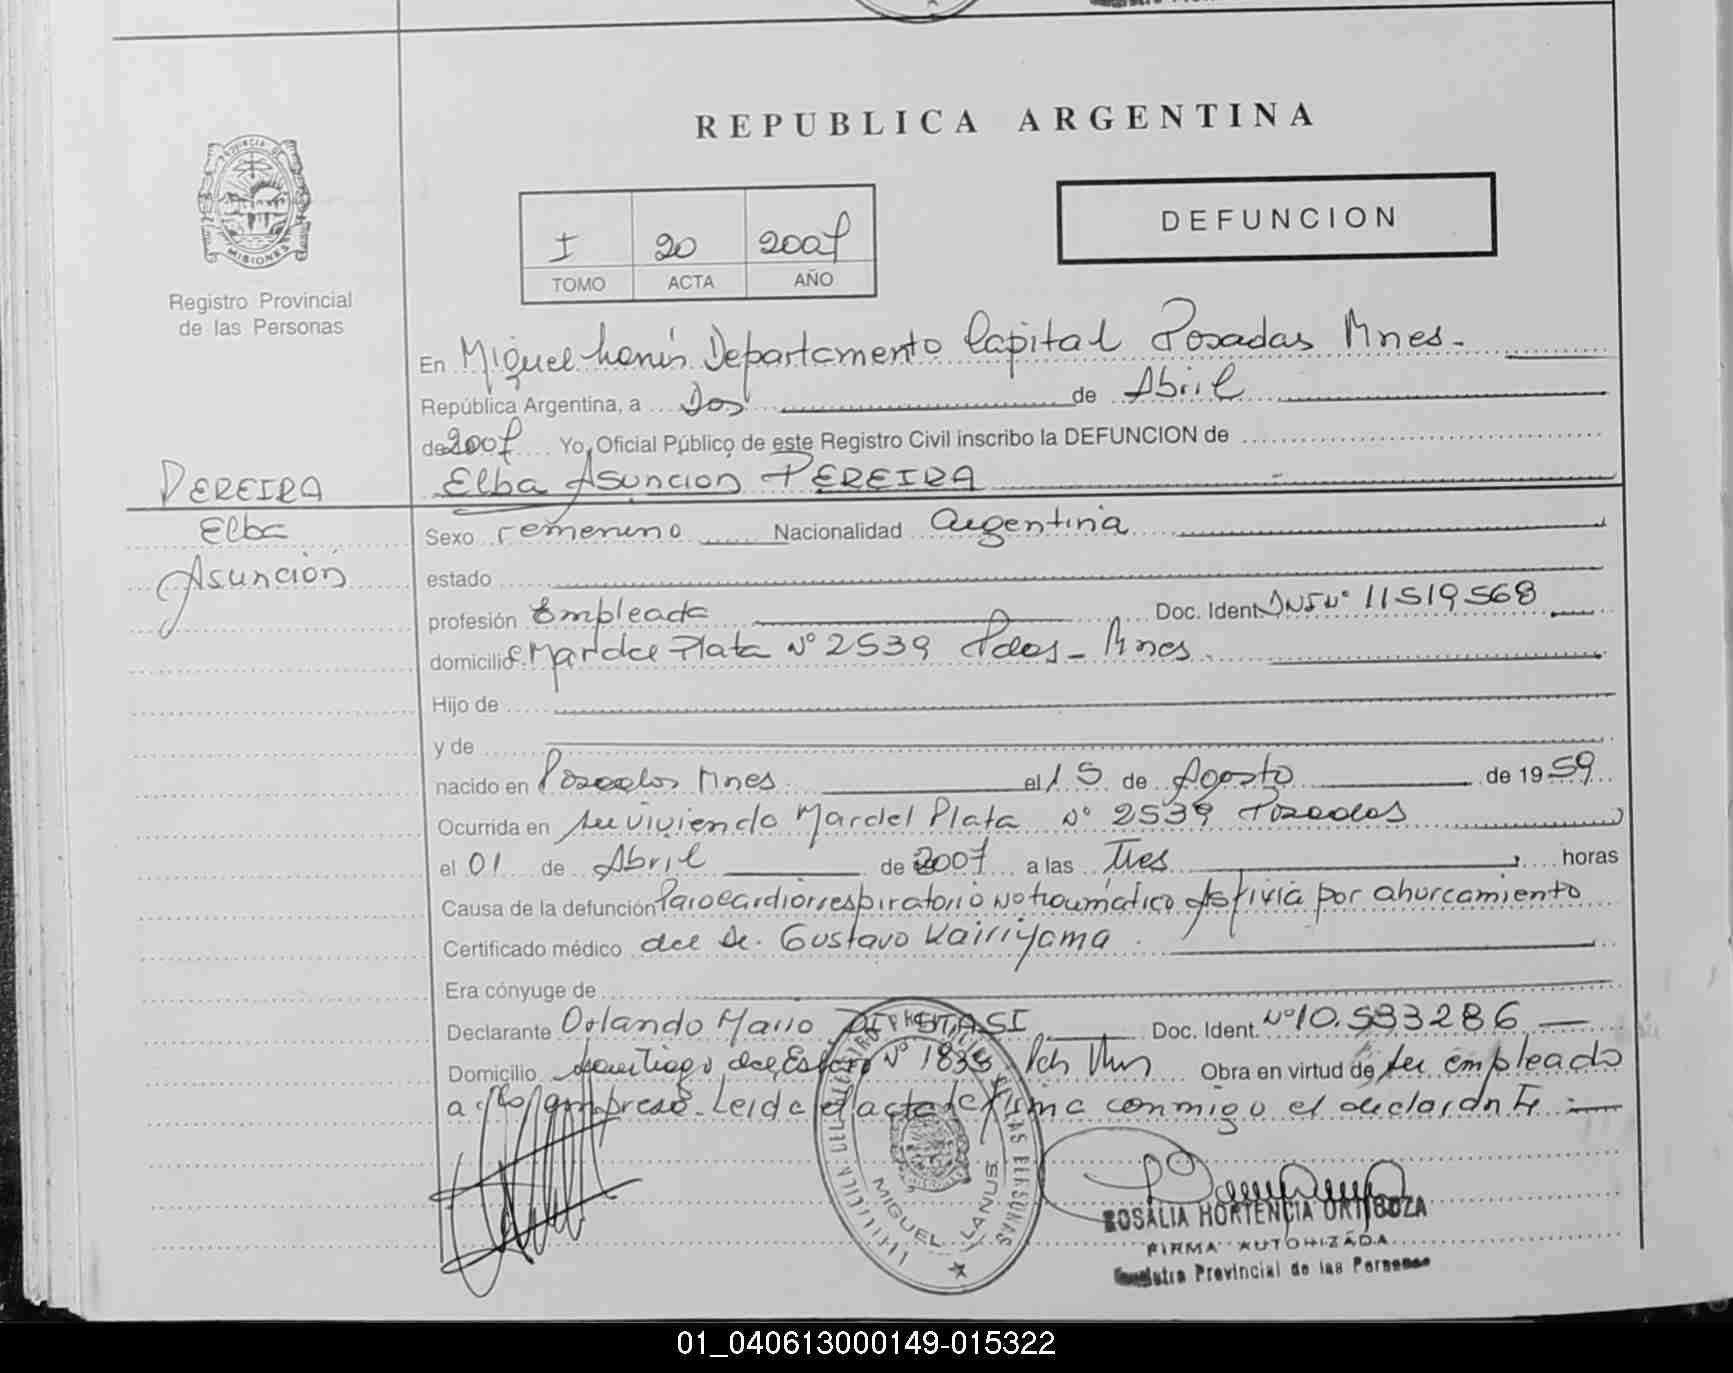 REPUBLICA ARGENTINA
PROVINCIA DE
MISIONES
Registro Provincial
de las Personas
I 20 2007
TOMO ACTA AÑO
DEFUNCION
En Miguel Lanús Departamento Capital Posadas Mnes.
República Argentina, a Dos de Abril
de 2007 Yo, Oficial Público de este Registro Civil inscribo la DEFUNCION de
PEREIRA
Elba Asunción PEREIRA
Elba
Asunción
Sexo Femenino Nacionalidad Argentina
estado
profesión Empleada Doc. Ident. DNI Nº 11519568
domicilio Mar del Plata Nº 2539 Pdas - Mnes
Hijo de
y de
nacido en Posadas Mnes el 15 de Agosto de 1959
Ocurrida en su vivienda Mar del Plata Nº 2539 Posadas
el 01 de Abril de 2007 a las Tres horas
Causa de la defunción Paro cardiorrespiratorio no traumático Asfixia por ahorcamiento
Certificado médico del Dr. Gustavo
Era cónyuge de
Declarante Orlando Mario Doc. Ident. Nº 10.533286
Domicilio Santiago del Estero Nº 1835 Obra en virtud de ser empleado
a empresa. Leida el acta la firma conmigo el declarante
MIGUEL LANUS
ROSALIA HORTENCIA ORTIGOZA
FIRMA AUTORIZADA
Registro Provincial de las Personas
01_040613000149-015322